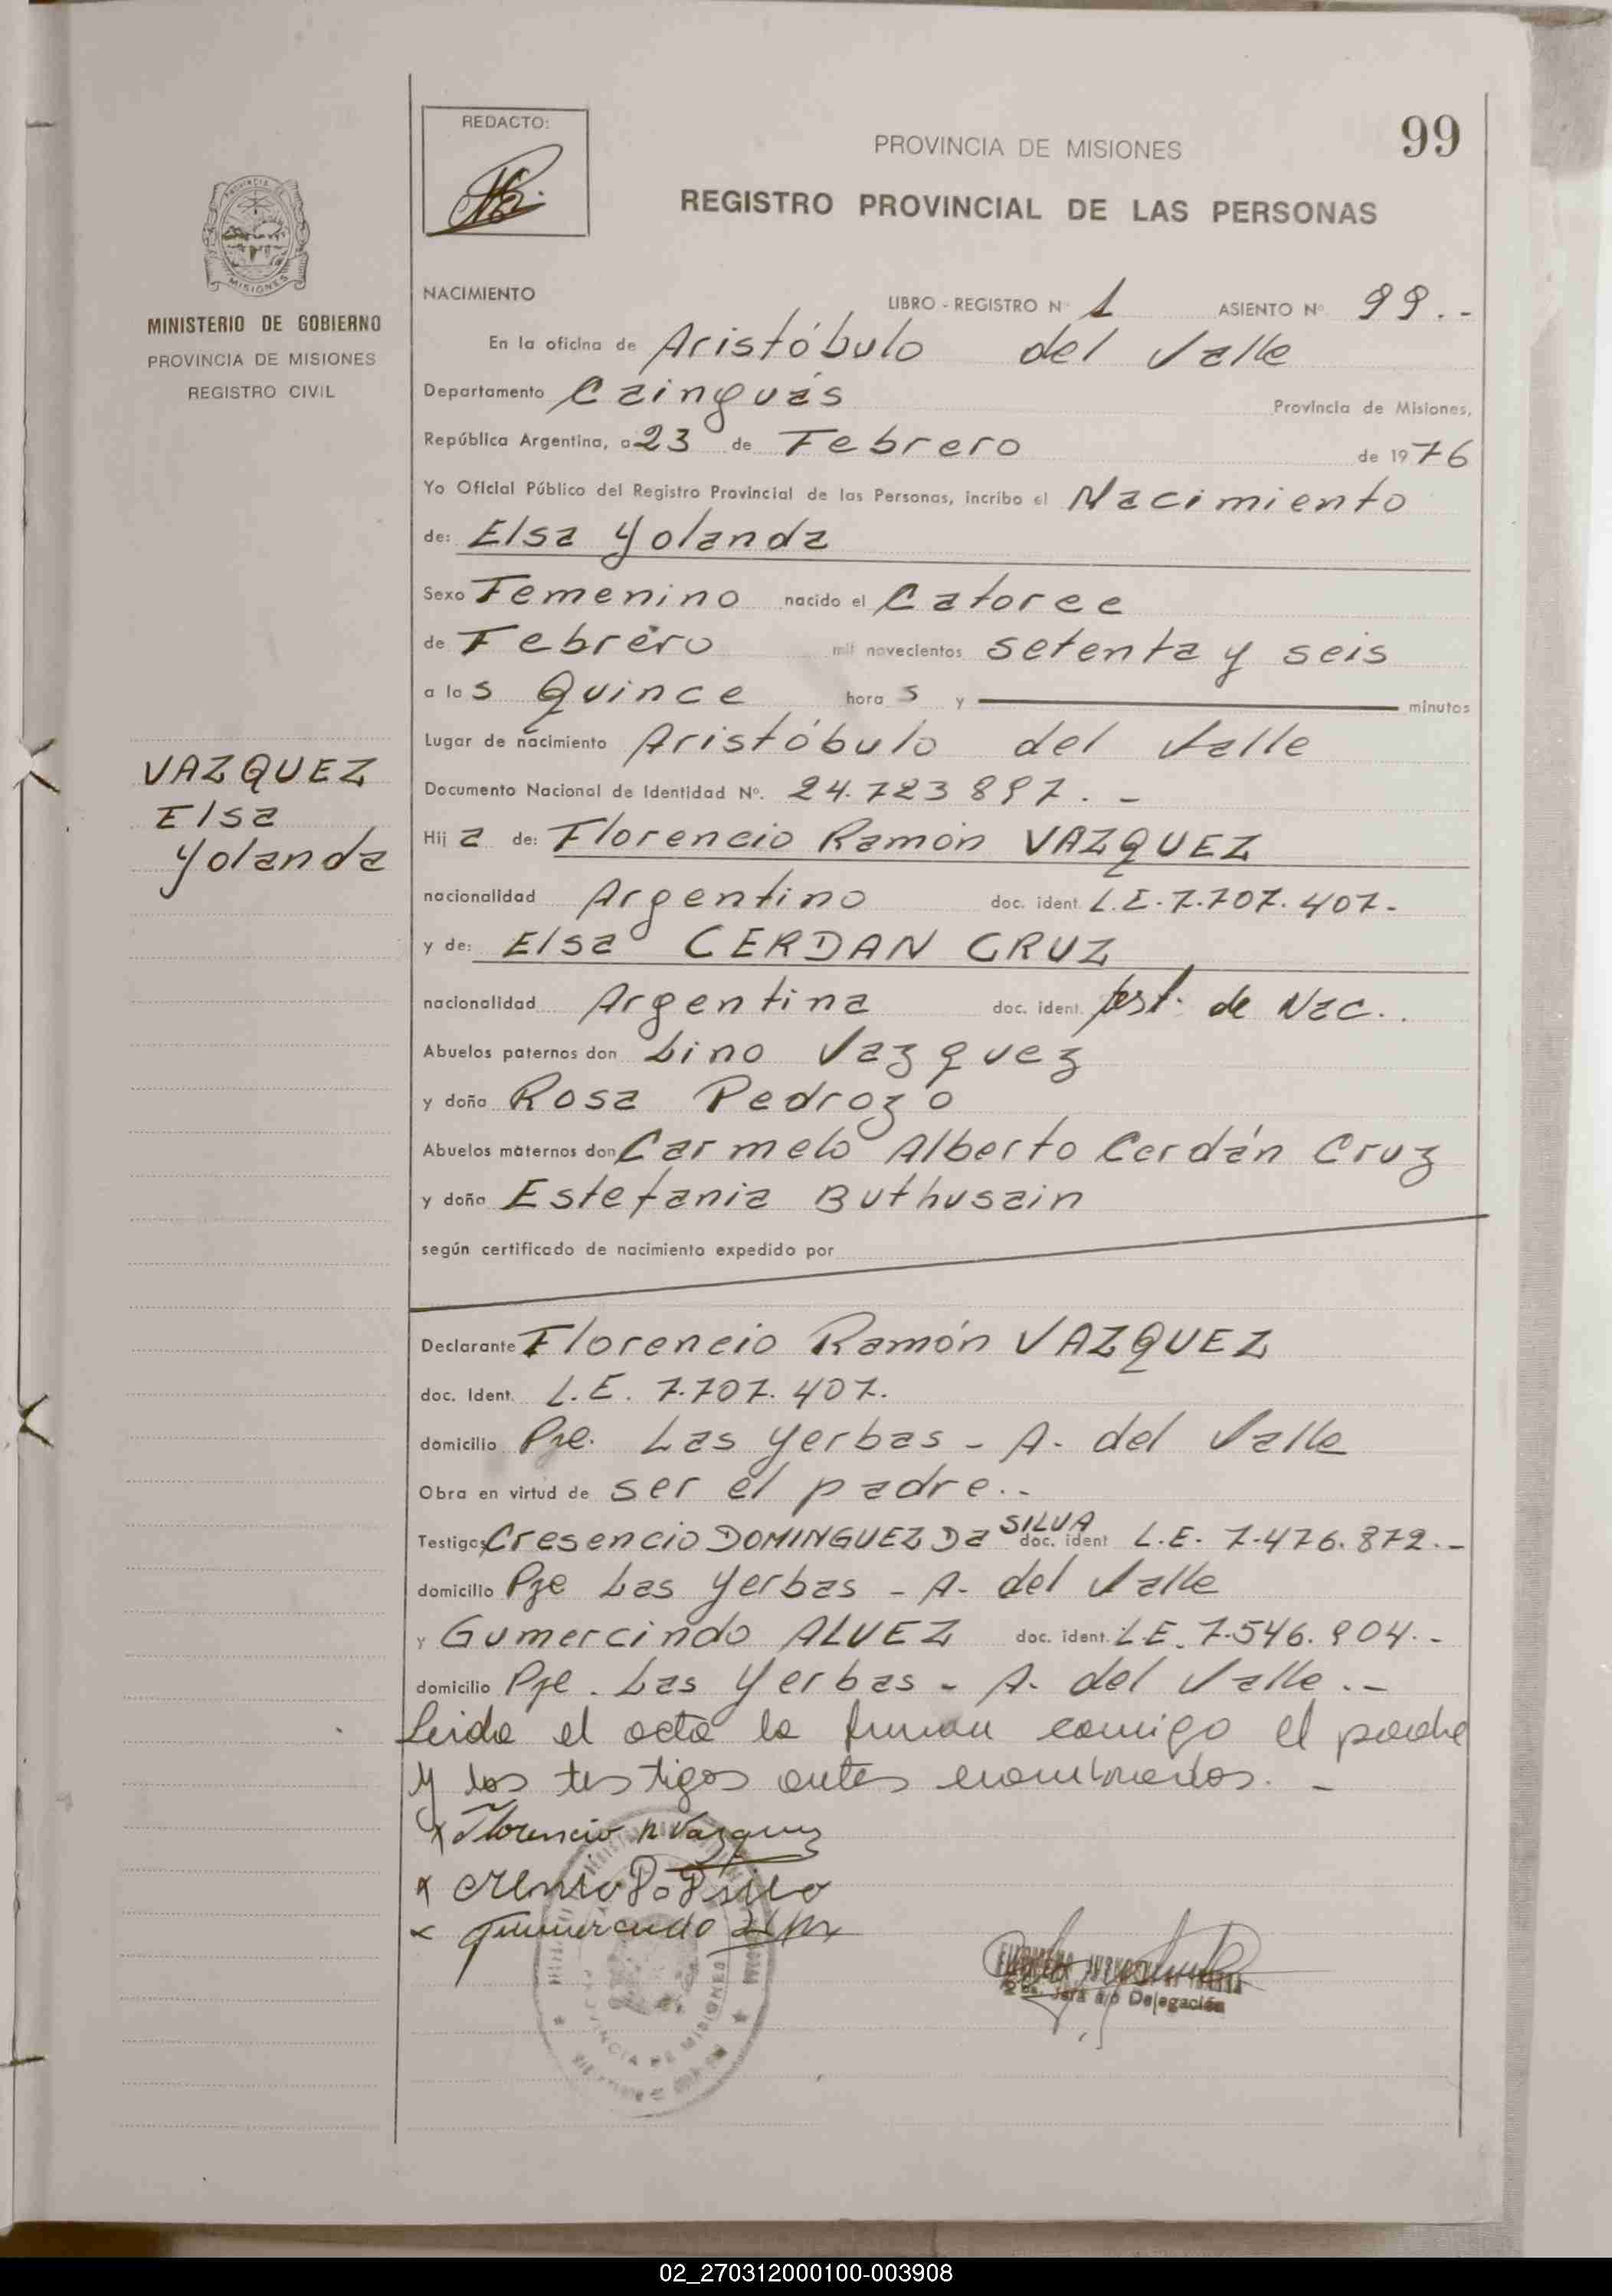 99
REDACTO:
PROVINCIA DE MISIONES
REGISTRO PROVINCIAL DE LAS PERSONAS
MISIONES
MINISTERIO DE GOBIERNO
PROVINCIA DE MISIONES
REGISTRO CIVIL
VAZQUEZ
Elsa
Yolanda
NACIMIENTO LIBRO - REGISTRO Nº 1 ASIENTO Nº 99.-
En la oficina de Aristóbulo del Valle
Departamento Cainguás Provincia de Misiones,
República Argentina, a 23 de Febrero de 1976
Yo Oficial Público del Registro Provincial de las Personas, incribo el Nacimiento
de: Elsa Yolanda
Sexo Femenino nacido el Catorce
de Febrero mil novecientos setenta y seis
a las Quince horas y minutos
Lugar de nacimiento Aristóbulo del Valle
Documento Nacional de Identidad Nº. 24.723897.-
Hija de: Florencio Ramón VAZQUEZ
nacionalidad Argentino doc. ident. L.E.7.707.407-
y de: Elsa CERDAN CRUZ
nacionalidad Argentina doc. ident. de Nac..
Abuelos paternos don Lino Vazquez
y doña Rosa Pedrozo
Abuelos maternos don Carmelo Alberto Cerdán Cruz
y doña Estefania Buthusain
según certificado de nacimiento expedido por
Declarante Florencio Ramón VAZQUEZ
doc. Ident. L.E. 7.707.407.
domicilio Pje. Las Yerbas - A. del Valle
Obra en virtud de ser el padre..-
Testigos Cresencio DOMINGUEZ Da SILVA doc. ident L.E. 7.476.872.-
domicilio Pje Las Yerbas - A. del Valle
y Gumercindo ALVEZ doc. ident. L.E. 7.546.904.-
domicilio Pje. Las Yerbas - A. del Valle.-
Leida el acta la firman comigo el padre
y los testigos antes nombrados. -
x Florencio R Vazquez
x
x Gumercindo
PROVINCIA DE MISIONES
Jefa a/c Delegación
02_270312000100-003908